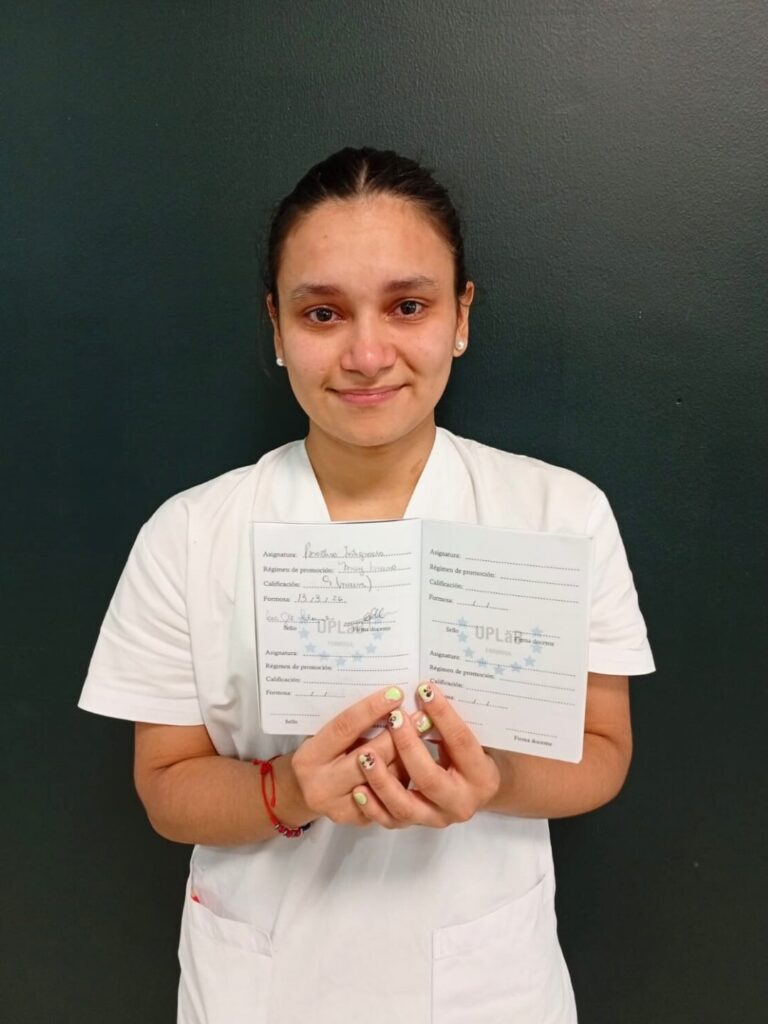 Asignatura:
Régimen de promoción: Mesa
Calificación: 9 (nueve)
Formosa: 13, 3, 26
Sello UPLaB Firma docente
FORMOSA
Asignatura:
Régimen de promoción:
Calificación:
Formosa: / /
Sello
Asignatura:
Régimen de promoción:
Calificación:
Formosa: / /
Sello UPLaB Firma docente
FORMOSA
Asignatura:
Régimen de promoción:
Calificación:
Formosa: / /
Firma docente